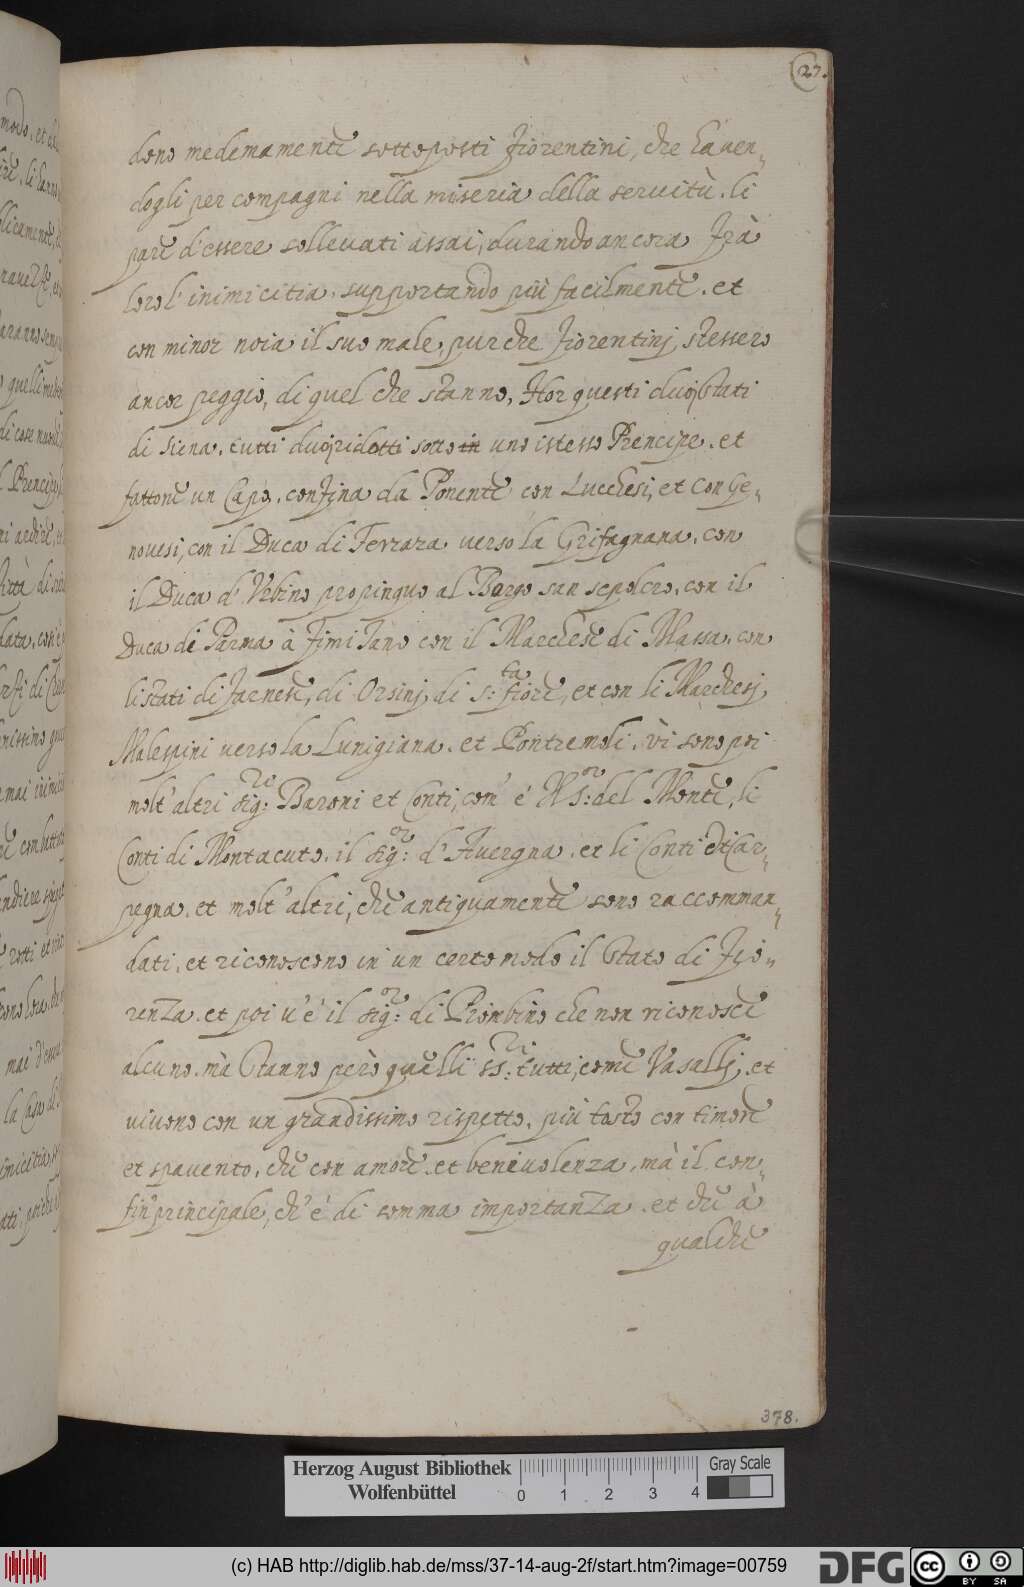 27.
dono medemamente sottoposti Fiorentini, che haven-
dogli per compagni nella miseria della servitù. li
pare d'essere sollevati assai, durando ancora frà
loro l'inimicitia. supportando più facilmente. et
con minor noia il suo male, pur che Fiorentinj stessero
ancor peggio, di quel che stanno, Hor questi duoj Stati
di Siena. tutti duoj ridotti sotto in uno istesso Prencipe. et
fattone un Capo. confina da Ponente con Lucchesi, et con Ge-
novesi, con il Duca di Ferrara verso la Grifagnana. con
il Duca d'Urbino propinquo al Borgo san sepolcro. con il
Duca di Parma à Fimitano con il Marchese di Massa. con
li stati di Farnese, di Orsinj, di S:ta fiore, et con li Marchesj
Malespini verso la Lunigiana. et Pontremoli. vi sono poi
molt'altri sig:ri Baroni et Conti, com'è Il S:or del Monte, li
Conti di Montacuto. il sig:or d'Avergna. et li Conti di Car-
pegna. et molt'altri, che antiquamente sono raccomman-
dati. et riconoscono in un certo modo il Stato di Fio-
renza. et poi v'è il sig:or di Piombino che non riconosce
alcuno. mà Stanno però quelli SS:ri tutti, come Vasallj. et
vivono con un grandissimo rispetto. più tosto con timore
et spavento. che con amore. et benivolenza. mà il con-
fin' principale, ch'è di somma importanza. et che à
qualche
378.
Herzog August Bibliothek
Wolfenbüttel
0 1 2 3 4
Gray Scale
(c) HAB http://diglib.hab.de/mss/37-14-aug-2f/start.htm?image=00759
DFG
cc BY SA